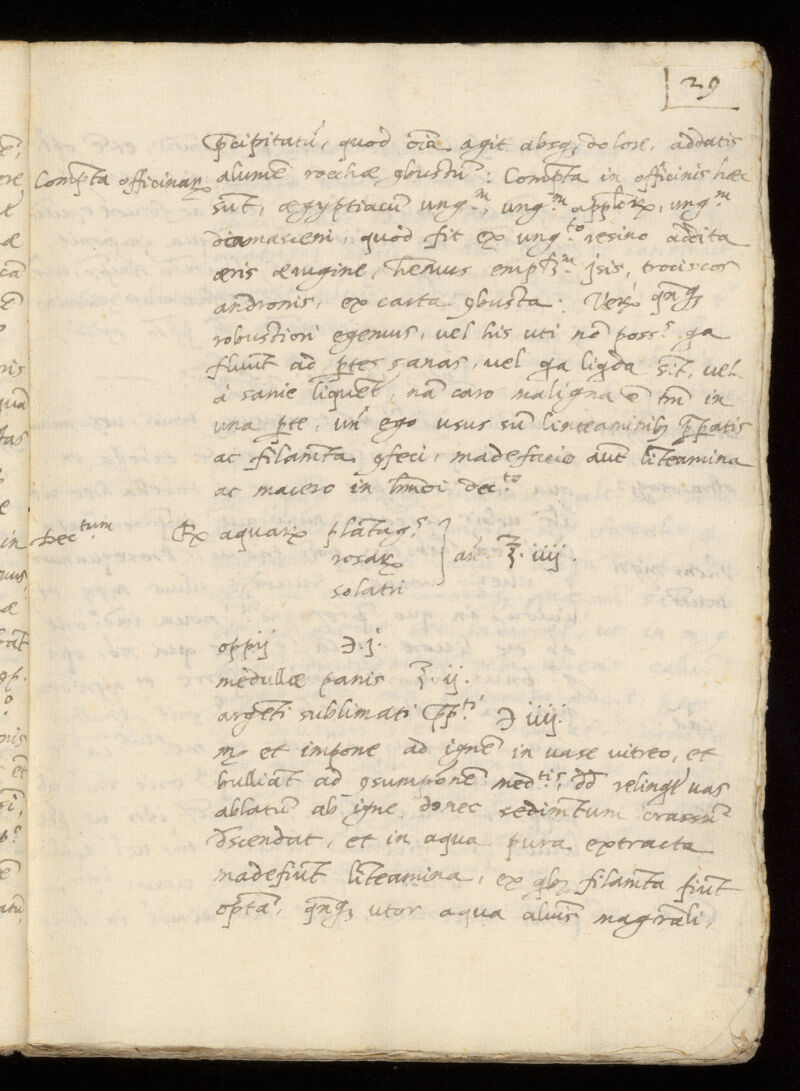 29
p̄cipitatū, quod oīa agit absq; dolore, addatis
Comp̄ta officinaꝝ
alumē rocchæ ꝯbustū: Comp̄ta in officinis hæc
sūt, ægyptiacū ung.m, ung.m app̄lorꝝ, ung.m
diamasceni, quod fit ex ung.to resino addita
æris ærugine, hēmus emp̄l.m isis, trociscos
andronis, ex carta ꝯbusta: Verū qn̄q;
robustiori egemus, vel his uti nō poss.s q̄a
fluūt ad p̄tes sanas, vel q̄a liq̄da sīt, vel
à sanie liquēt, nā caro maligna ē tm̄ in
una p̄te, un̄ ego usus sū linteaminibꝫ p̄p̄atis
ac filam̄ta ꝯfeci, madefacio aūt līteamina
ac macero in hm̄õi dec.to
Dec.tum
Rx aquarꝝ plātag.s
rosaꝝ
solatri
an̄. ℥. iiij.
oppij ℈. j.
medullæ panis ℥. ij.
argēti sublimati p̄p.ti ℈ iiij.
mꝫ et impone ad ignē in uase vitreo, et
bulliāt ad ꝯsump̄onē med.tis, dd̄ relinq̄t uas
ablatū ab igne donec sedim̄tum crassū
dscendat, et in aqua pura extracta
madefiūt līteamina, ex q̄bꝫ filam̄ta fiūt
op̄ta, qn̄q; utor aqua alūīs magr̄ali,